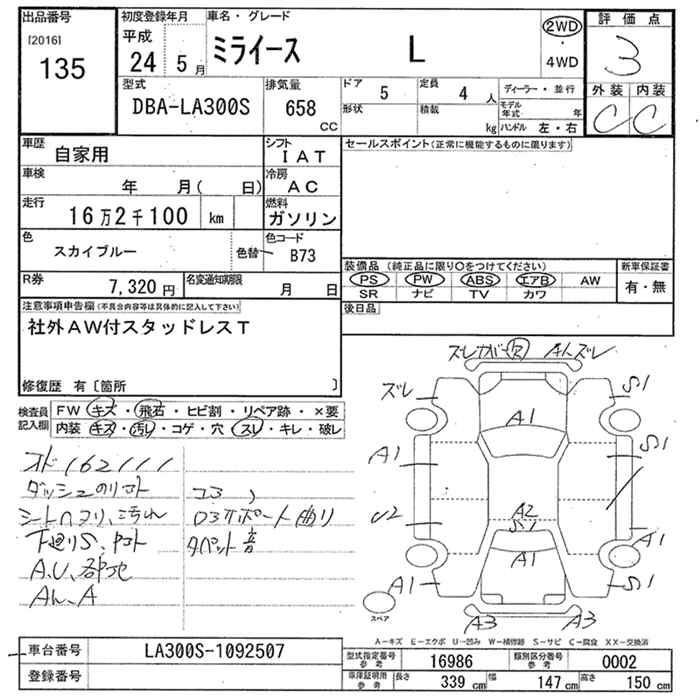 出品番号
[2016]
135
初度登録年月
平成
24 5 月
車名・グレード
ミライース L
2WD
・
4WD
評価点
3
外装 内装
C C
型式
DBA-LA300S
排気量
658
CC
ドア 5
形状
定員 4 人
積載 kg
ディーラー・並行
モデル年式 年
ハンドル 左・右
車歴
自家用
シフト
IAT
車検
年 月( 日)
冷房
AC
走行
16万2千100 km
燃料
ガソリン
色
スカイブルー
色替
色コード
B73
R券
7,320 円
名変通知期限
月 日
注意事項申告欄 (不具合内容等は具体的に記入して下さい)
社外AW付スタッドレスT
修復歴 有〔箇所 〕
セールスポイント(正常に機能するものに限ります)
装備品 (純正品に限り○をつけてください)
PS PW ABS エアB AW
SR ナビ TV カワ
新車保証書
有・無
後日品
検査員
記入欄
FW キズ・飛石・ヒビ割・リペア跡・×要
内装 キズ・汚レ・コゲ・穴・スレ・キレ・破レ
162111
シートヘタリ、汚れ
下廻りS、
タペット音
A.U.各部
ズレ
A1
S1
A1
S1
U2
A2
A1
A1
A1
S1
A3
A3
スペア
A-キズ E-エクボ U-凹み W-補修跡 S-サビ C-腐食 XX-交換済
車台番号
LA300S-1092507
登録番号
型式指定番号
参考
16986
類別区分番号
参考
0002
車庫証明用
参考
長さ 339 cm
幅 147 cm
高さ 150 cm